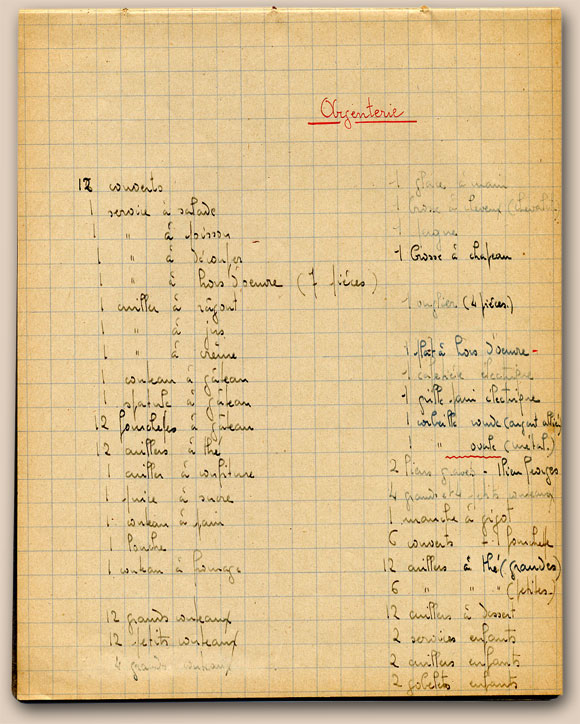 Argenterie
12 couverts
1 service à salade
1 " à poisson
1 " à découper
1 " à hors d'oeuvre (7 pièces)
1 cuiller à ragout
1 " à jus
1 " à crème
1 couteau à gâteau
1 spatule à gâteau
12 fourchettes à gâteau
12 cuillers à thé
1 cuiller à confiture
1 pince à sucre
1 couteau à pain
1 louche
1 couteau à fromage
12 grands couteaux
12 petits couteaux
4 grands couteaux
1 glace à main
1 brosse à cheveux
1 peigne
1 brosse à chapeau
1 onglier (4 pièces.)
1 plat à hors d'oeuvre -
1 cafetière électrique
1 grille pain électrique
1 corbeille ronde (argent
1 " ovale (métal.)
2 liens gravés -
4 grands et 4 petits couteaux
1 manche à gigot
6 couverts - 1 fourchette
12 cuillers à thé (grandes)
6 " " " (petites.)
12 cuillers à dessert
2 services enfants
2 cuillers enfants
2 gobelets enfants